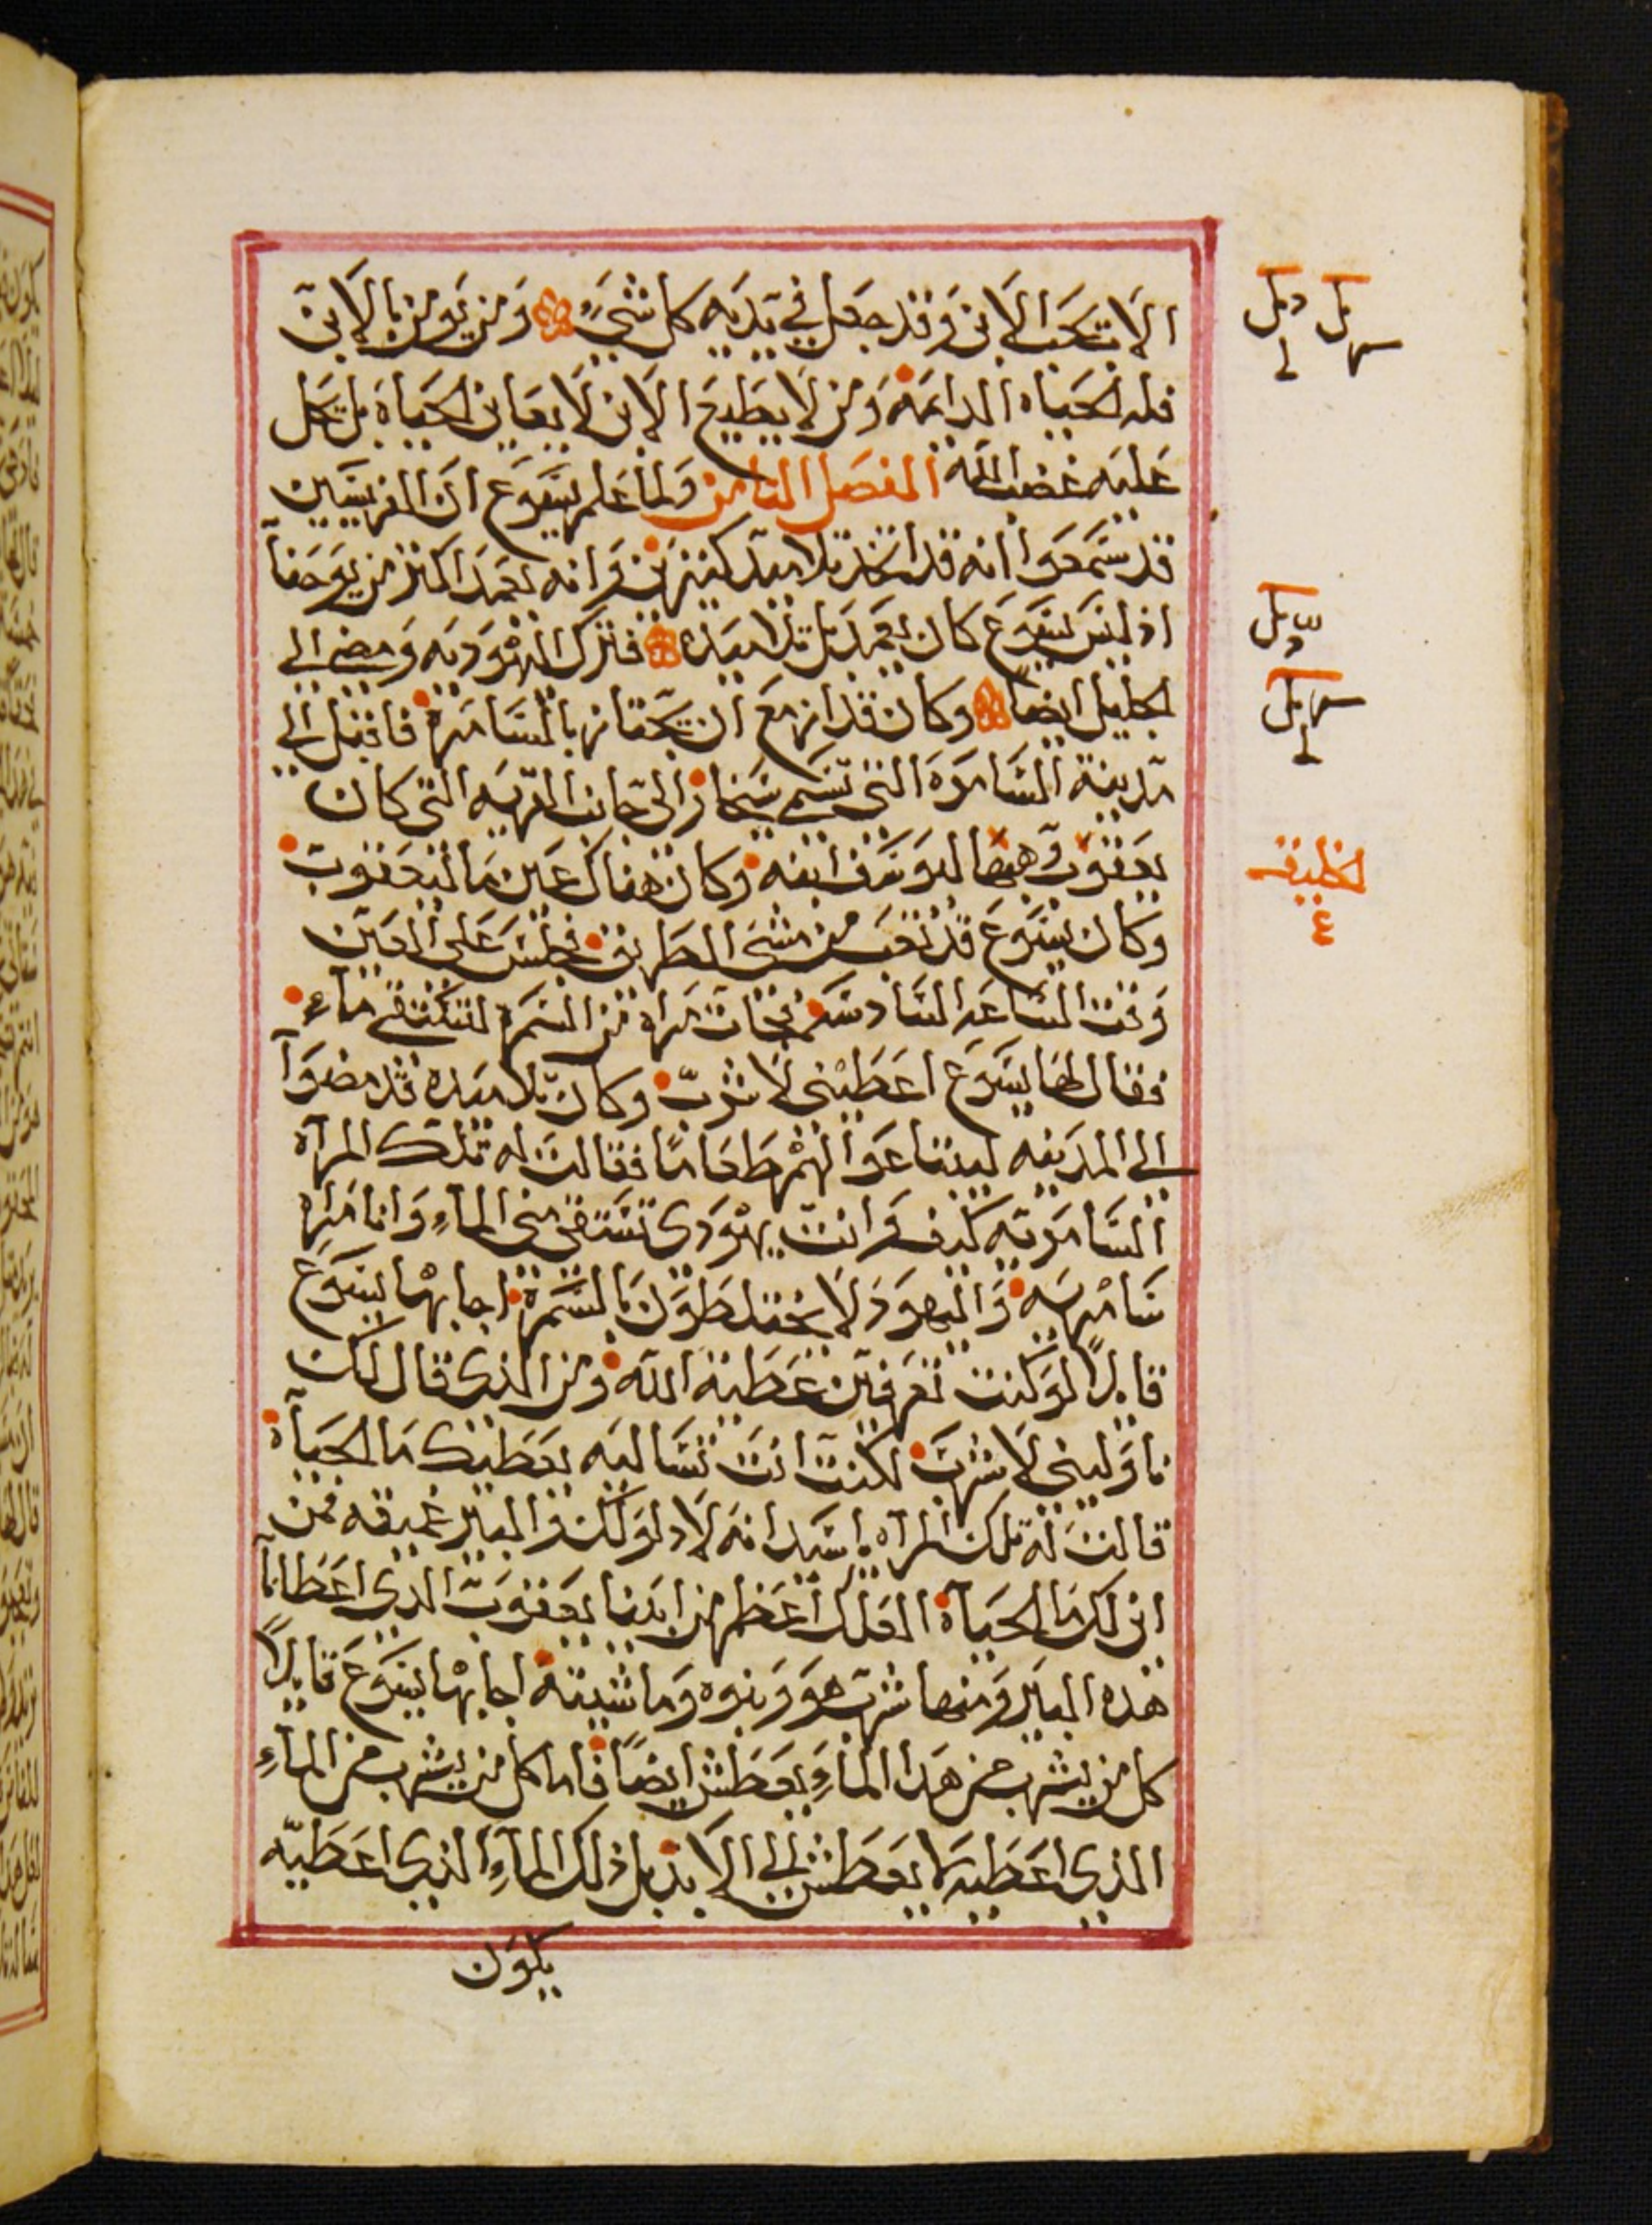 الاب يحب الابن وقد جعل في يديه كل شيء ومن يومن بالابن
فله الحياه الدايمة ومن لا يطيع الابن لا يعاين الحياة بل يحل
عليه غضب الله الفصل الثامن ولما علم يسوع ان الفريسيين
قد سمعوا انه قد اتخذ تلاميد كثيرين وانه يعمد اكثر من يوحنا
اذ ليس يسوع كان يعمد بل تلاميده فترك اليهوديه ومضى الى
الجليل ايضا وكان قد ازمع ان يجتاز بالسامرة فاقبل الى
مدينة السامره التي تسمى سخار الى جانب القريه التي كان
يعقوب وهبها ليوسف ابنه وكان هناك عين ما ليعقوب
وكان يسوع قد تعب من مشي الطريق فجلس على العين
وقت الساعه السادسه فجات مراه من السمرة لتستقي ماء
فقال لها يسوع اعطيني لاشرب وكان تلاميده قد مضوا
الى المدينه ليبتاعوا لهم طعاما فقالت له تلك المرآه
السامريه كيف وانت يهودي تستقي مني الماء وانا مراه
سامريه واليهود لا يختلطون بالسمرة اجابها يسوع
قايلا لو كنت تعرفين عطية الله ومن الذي قال لك
ناوليني لاشرب لكنت انت تساليه يعطيك ما الحياة
قالت له تلك المرآه يا سيد انه لا دلو لك والبير عميقه فمن
اين لك ما الحياة العلك اعظم من ابينا يعقوب الدي اعطانا
هذه البير ومنها شرب هو وبنوه وماشيته اجابها يسوع قايلا
كل من يشرب من هذا الماء يعطش ايضا فاما كل من يشرب من الماء
الذي اعطيه لا يعطش الى الابد بل ذلك الماء الذي اعطيه
يكون
لخليفه
٤